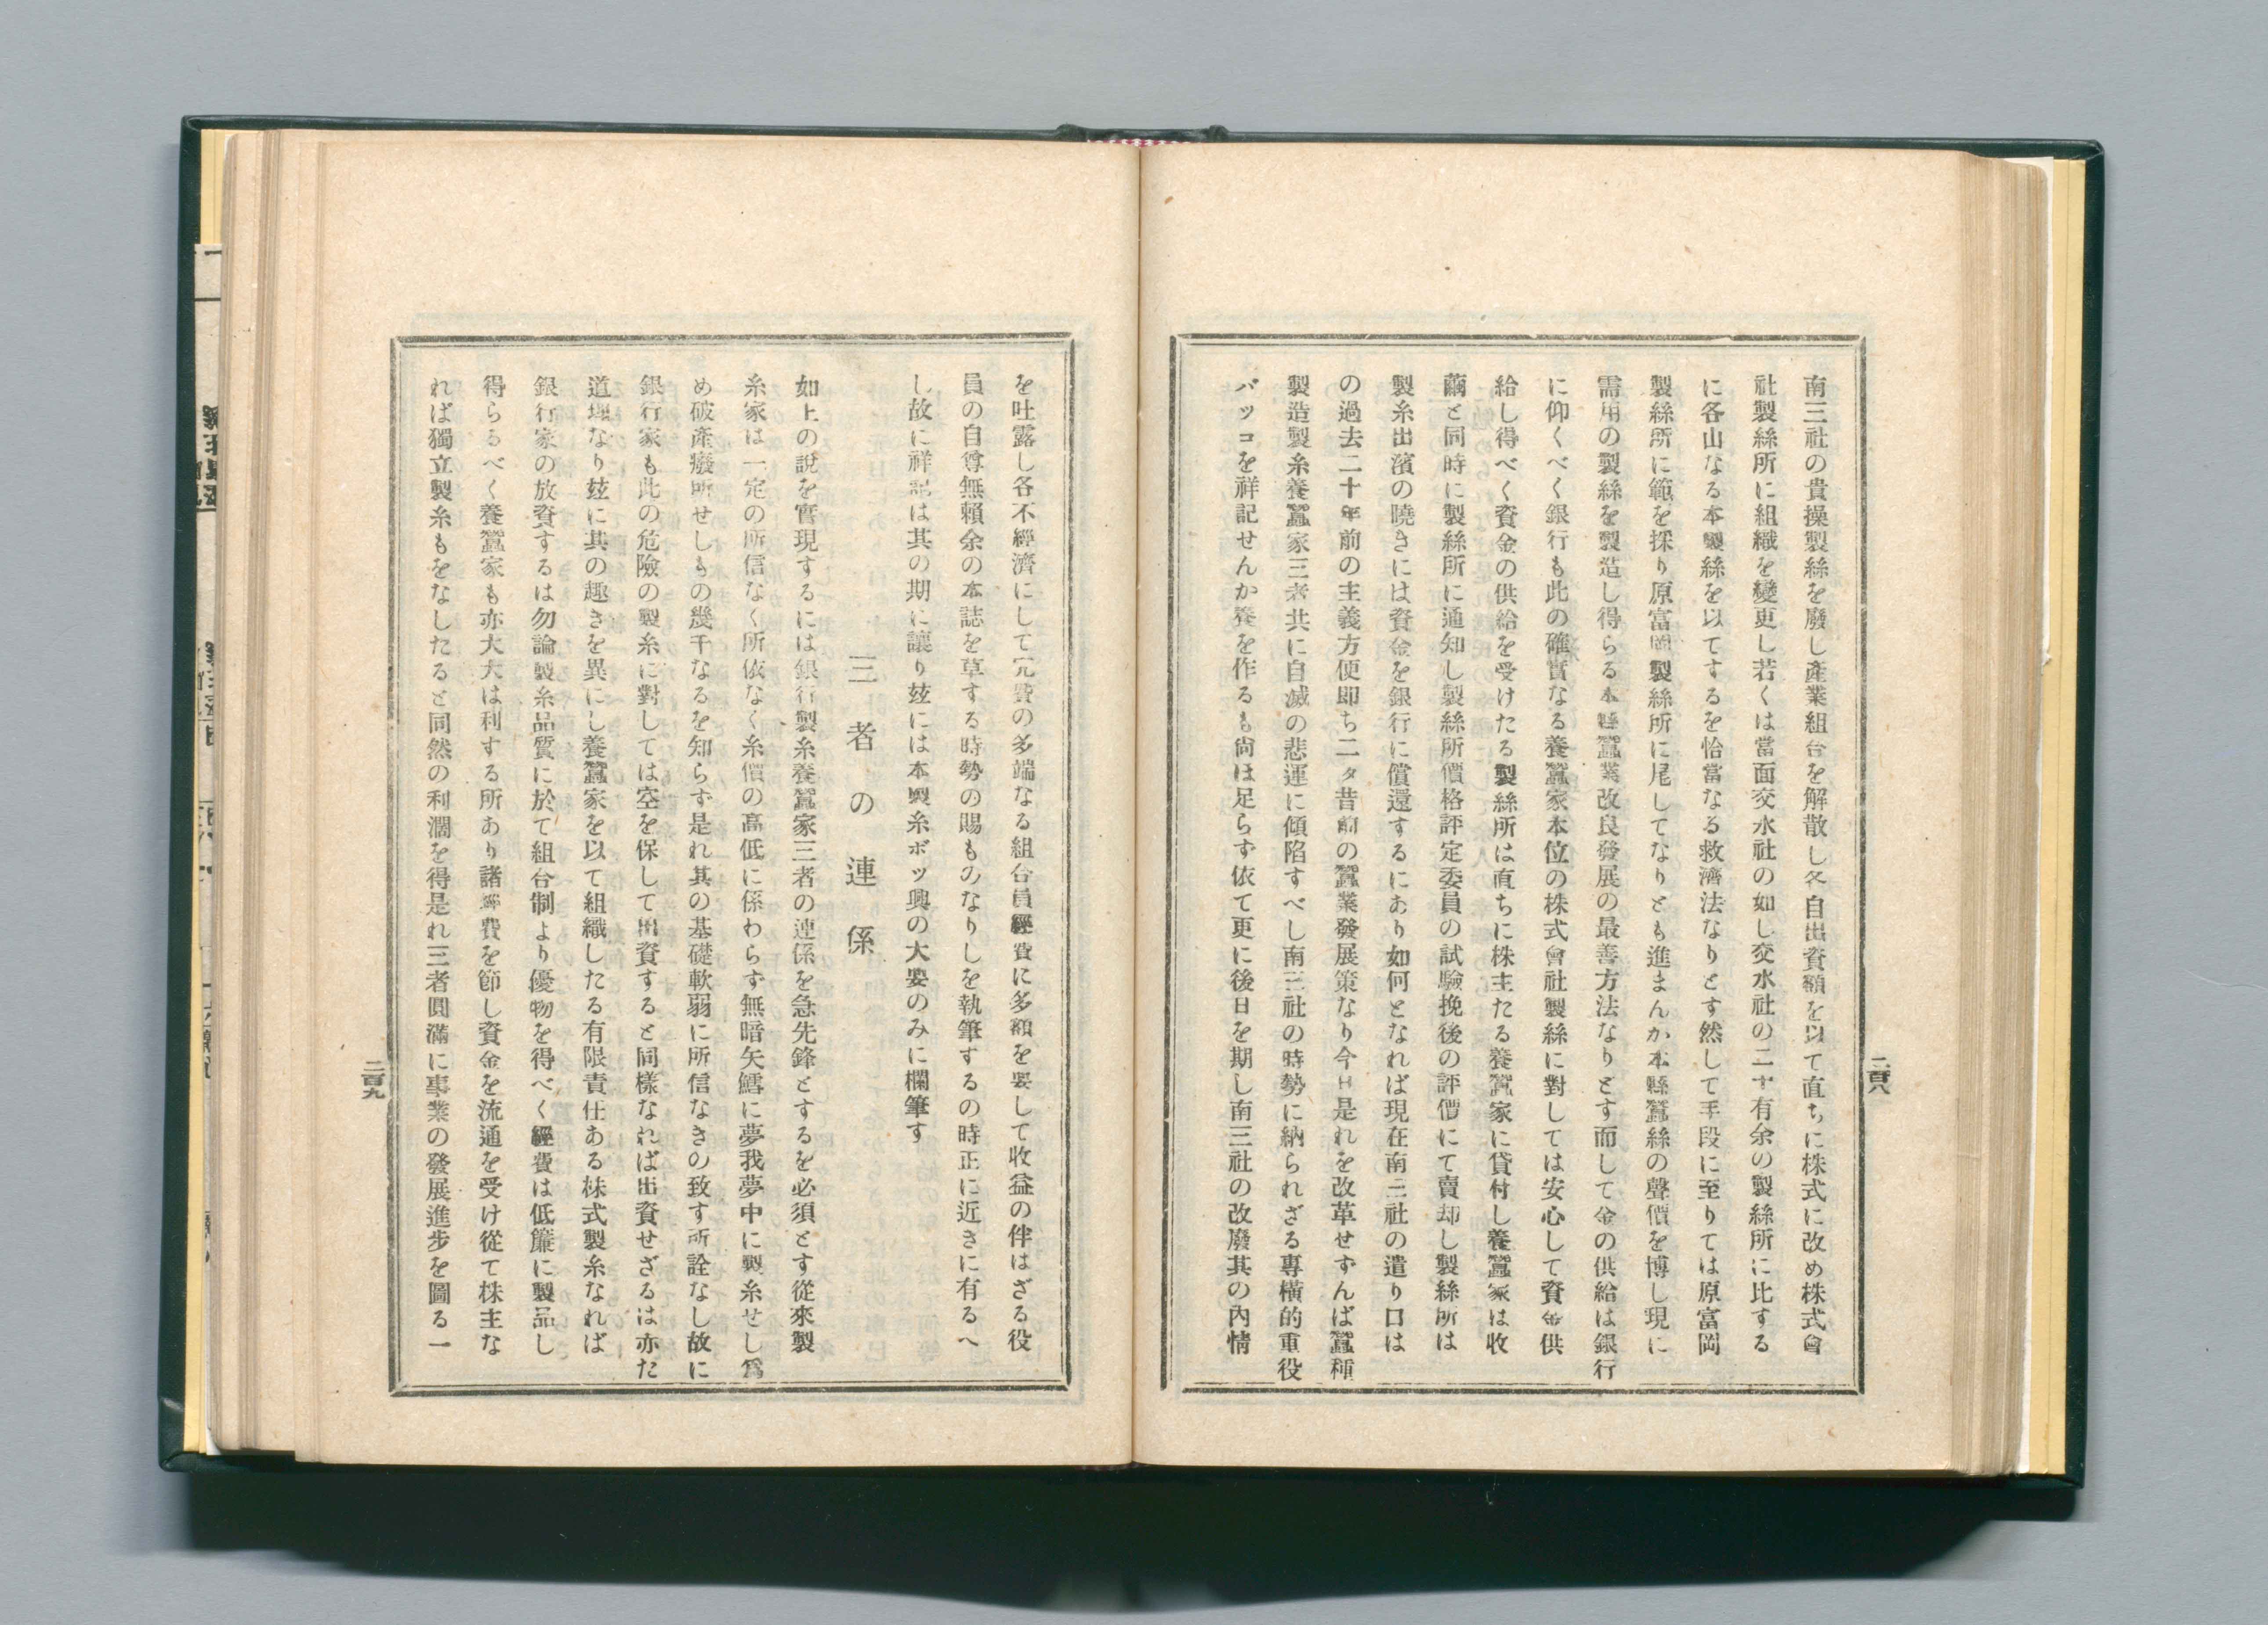 南三社の貴操製絲を廢し產業組合を解散し各自出資額を以て直ちに株式に改め株式會
社製絲所に組織を變更し若くは當面交水社の如し交水社の二十有余の製絲所に比する
に各山なる本製絲を以てするを恰當なる救濟法なりとす然して手段に至りては原富岡
製絲所に範を採り原富岡製絲所に尾してなりとも進まんか本縣蠶絲の聲價を博し現に
需用の製絲を製造し得らる本縣蠶業改良發展の最善方法なりとす而して金の供給は銀行
に仰くべく銀行も此の確實なる養蠶家本位の株式會社製絲に對しては安心して資金供
給し得べく資金の供給を受けたる製絲所は直ちに株主たる養蠶家に貸付し養蠶家は收
繭と同時に製絲所に通知し製絲所價格評定委員の試驗挽後の評價にて賣却し製絲所は
製糸出濱の曉きには資金を銀行に償還するにあり如何となれば現在南三社の遣り口は
の過去二十年前の主義方便即ち二タ昔前の蠶業發展策なり今日是れを改革せずんば蠶種
製造製糸養蠶家三者共に自滅の悲運に傾陷すべし南三社の時勢に納られざる專橫的重役
バッコを祥記せんか養を作るも尙は足らず依て更に後日を期し南三社の改廢其の內情
二百八
を吐露し各不經濟にして冗費の多端なる組合員經費に多額を要して收益の伴はざる役
員の自尊無賴余の本誌を草する時勢の賜ものなりしを執筆するの時正に近きに有るへ
し故に祥記は其の期に讓り玆には本製糸ボッ興の大要のみに欄筆す
三者の連係
如上の說を實現するには銀行製糸養蠶家三者の連係を急先鋒とするを必須とす從來製
糸家は一定の所信なく所依なく糸價の高低に係わらず無暗矢鱈に夢我夢中に製糸せし爲
め破產癈所せしもの幾千なるを知らず是れ其の基礎軟弱に所信なきの致す所詮なし故に
銀行家も此の危險の製糸に對しては空を保して出資すると同樣なれば出資せざるは亦た
道理なり玆に其の趣きを異にし養蠶家を以て組織したる有限責任ある株式製糸なれば
銀行家の放資するは勿論製糸品質に於て組合制より優物を得べく經費は低簾に製品し
得らるべく養蠶家も亦大大は利する所あり諸經費を節し資金を流通を受け從て株主な
れば獨立製糸もをなしたると同然の利潤を得是れ三者圓滿に事業の發展進步を圖る一
二百九